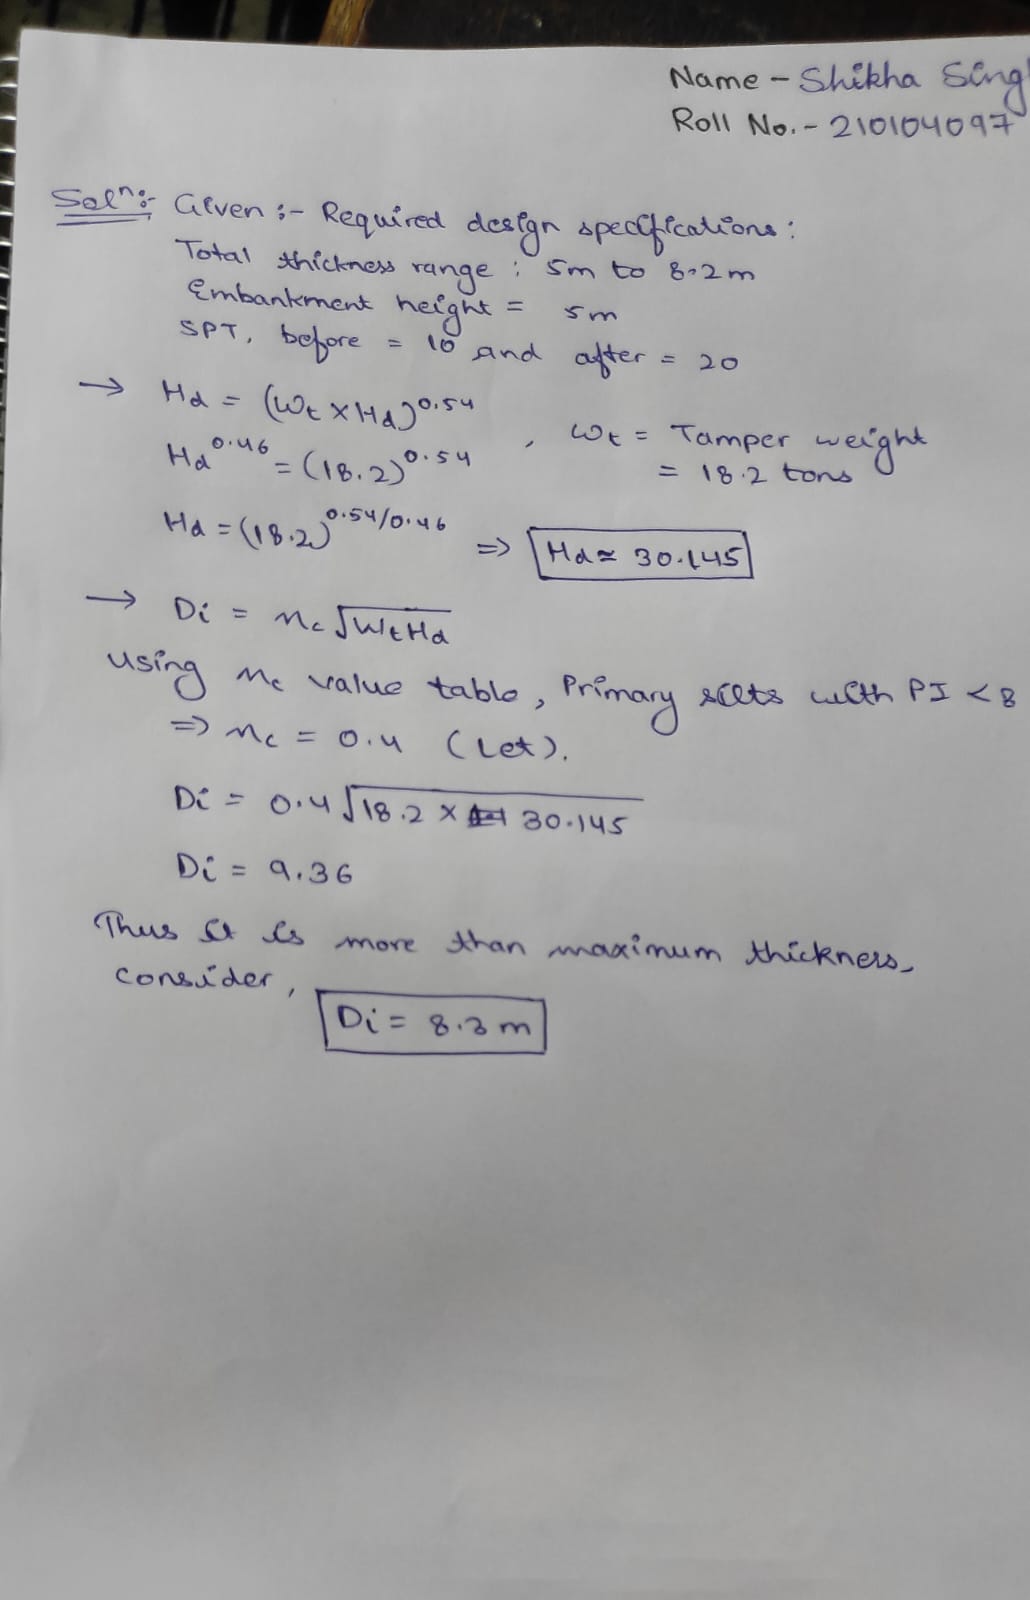 Name - Shikha Sing
Roll No. - 210104097
Solⁿ :- Given :- Required design specifications :
Total thickness range : 5m to 8.2m
Embankment height = 5m
SPT, before = 10 and after = 20
→ Hd = (Wt × Hd)^0.54 , Wt = Tamper weight
Hd^0.46 = (18.2)^0.54 = 18.2 tons
Hd = (18.2)^0.54/0.46 ⇒ Hd ≈ 30.145
→ Di = nc √WtHd
using nc value table, Primary silts with PI < 8
⇒ nc = 0.4 (Let).
Di = 0.4 √18.2 × 30.145
Di = 9.36
Thus it is more than maximum thickness,
consider,
Di = 8.3 m